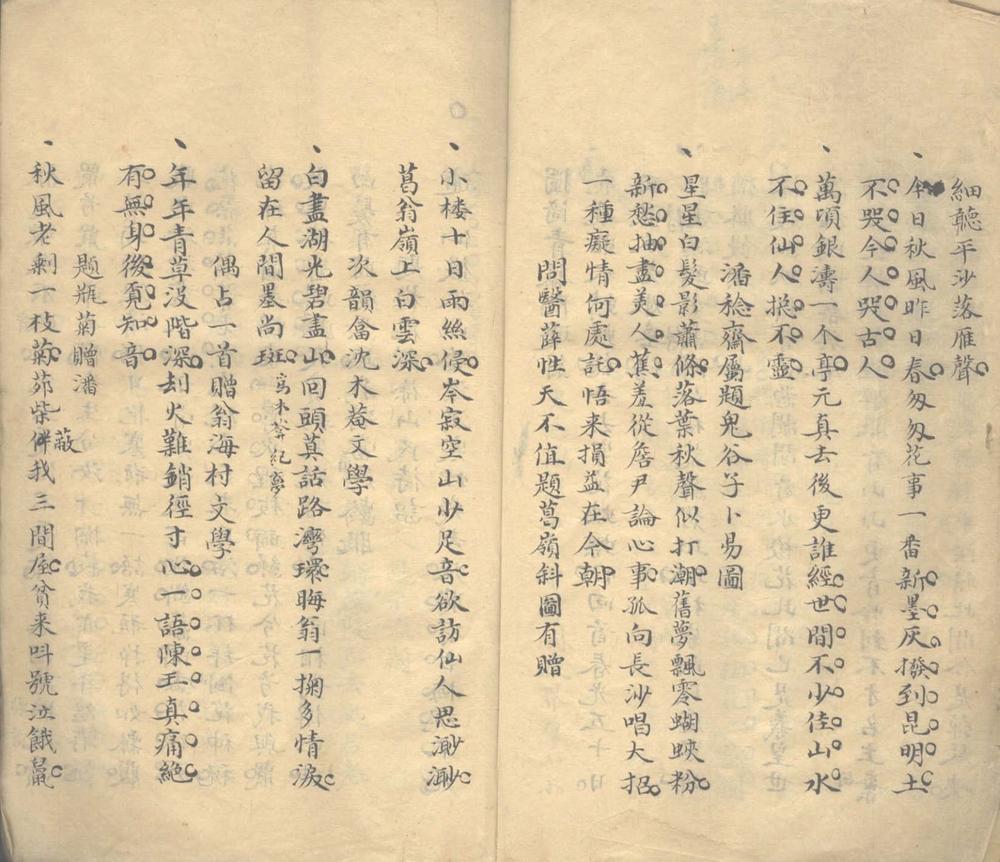 細聽平沙落雁聲
今日秋風昨日春匆匆花事一番新墨灰撥到昆明土
不哭今人哭古人
萬頃銀濤一个亭元真去後更誰經世間不少佳山水
不住仙人揔不靈
潘稔齋屬題鬼谷子卜易圖
星星白髮影蕭條落葉秋聲似打潮舊夢飄零蝴蝶粉
新愁抽盡美人蕉羞從詹尹論心事孤向長沙唱大招
一種癡情何處託悟来損益在今朝
問醫薛性天不值題葛嶺斜圖有贈
小楼十日雨絲侵岑寂空山少足音欲訪仙人思渺渺
葛翁嶺上白雲深
次韻畣沈木菴文學
白盡湖光碧盡山回頭莫話路灣環晦翁一掬多情淚
留在人間墨尚斑寫木菴紀夢
偶占一首贈翁海村文學
年年青草没階深刦火難銷徑寸心一語陳王真痛絶
有無身後覔知音
題瓶菊贈潘
秋風老剩一枝菊茆柴伴我三間屋貧来呌號泣餓鼇
蔽